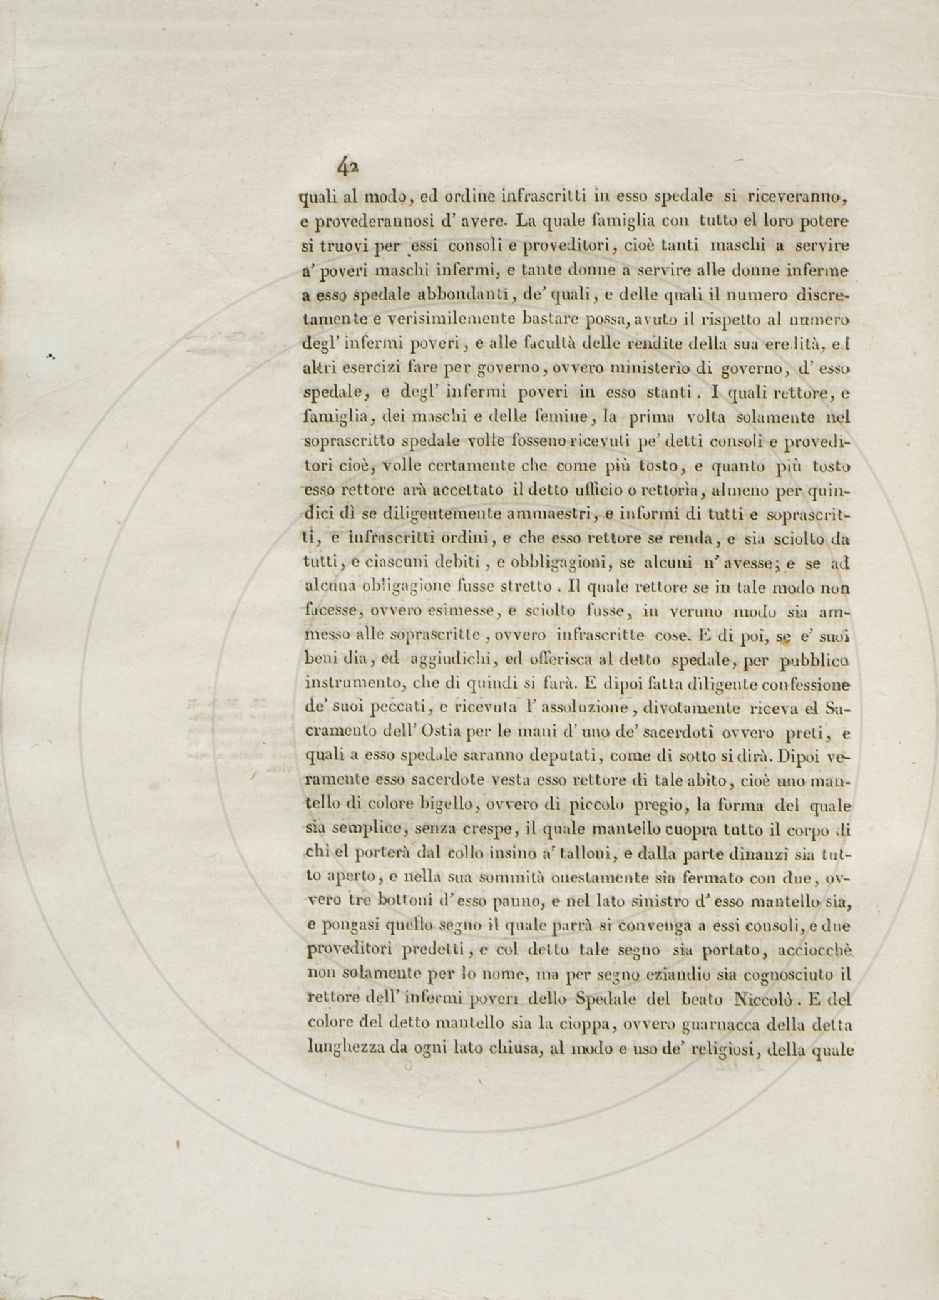 42
quali al modo, ed ordine infrascritti in esso spedale si riceveranno,
e provederannosi d' avere. La quale famiglia con tutto el loro potere
si truovi per essi consoli e proveditori, cioè tanti maschi a servire
a' poveri maschi infermi, e tante donne a servire alle donne inferme
a esso spedale abbondanti, de' quali, e delle quali il numero discre-
tamente e verisimilemente bastare possa, avuto il rispetto al numero
degl' infermi poveri, e alle facultà delle rendite della sua eredità, ed
altri esercizi fare per governo, ovvero ministerio di governo, d' esso
spedale, e degl' infermi poveri in esso stanti. I quali rettore, e
famiglia, dei maschi e delle femine, la prima volta solamente nel
soprascritto spedale volle fosseno ricevuti pe' detti consoli e provedi-
tori cioè, volle certamente che come più tosto, e quanto più tosto
esso rettore arà accettato il detto ufficio o rettorìa, almeno per quin-
dici dì se diligentemente ammaestri, e informi di tutti e soprascrit-
ti, e infrascritti ordini, e che esso rettore se renda, e sia sciolto da
tutti, e ciascuni debiti, e obbligagioni, se alcuni n' avesse; e se ad
alcuna obligagione fusse stretto. Il quale rettore se in tale modo non
facesse, ovvero esimesse, e sciolto fusse, in veruno modo sia am-
messo alle soprascritte, ovvero infrascritte cose. E di poi, se e' suoi
beni dia, ed aggiudichi, ed offerisca al detto spedale, per pubblico
instrumento, che di quindi si farà. E dipoi fatta diligente confessione
de' suoi peccati, e ricevuta l' assoluzione, divotamente riceva el Sa-
cramento dell' Ostia per le mani d' uno de' sacerdoti ovvero preti, e
quali a esso spedale saranno deputati, come di sotto si dirà. Dipoi ve-
ramente esso sacerdote vesta esso rettore di tale abito, cioè uno man-
tello di colore bigello, ovvero di piccolo pregio, la forma del quale
sia semplice, senza crespe, il quale mantello cuopra tutto il corpo di
chi el porterà dal collo insino a' talloni, e dalla parte dinanzi sia tut-
to aperto, e nella sua sommità onestamente sia fermato con due, ov-
vero tre bottoni d' esso panno, e nel lato sinistro d' esso mantello sia,
e pongasi quello segno il quale parrà si convenga a essi consoli, e due
proveditori predetti, e col detto tale segno sia portato, acciocchè
non solamente per lo nome, ma per segno eziandio sia cognosciuto il
rettore dell' infermi poveri dello Spedale del beato Niccolò. E del
colore del detto mantello sia la cioppa, ovvero guarnacca della detta
lunghezza da ogni lato chiusa, al modo e uso de' religiosi, della quale